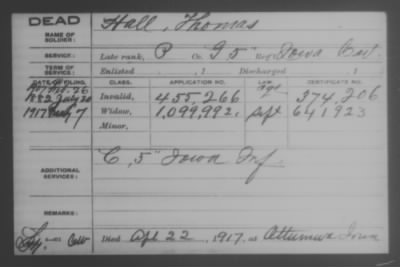 DEAD
NAME OF SOLDIER:
Hall, Thomas
SERVICE:
Late rank, P Co. G 5" Reg't Iowa Cav.
TERM OF SERVICE:
Enlisted , 1 Discharged , 1
DATE OF FILING. CLASS. APPLICATION NO. LAW. CERTIFICATE NO.
1882 July 20 Invalid, 455,266 374,206
1917 7 Widow, 1,099,992 Sept 641923
Minor,
ADDITIONAL SERVICES:
"C, 5" Iowa Inf.
REMARKS:
Died Apl 22, 1917, at Ottumwa Iowa